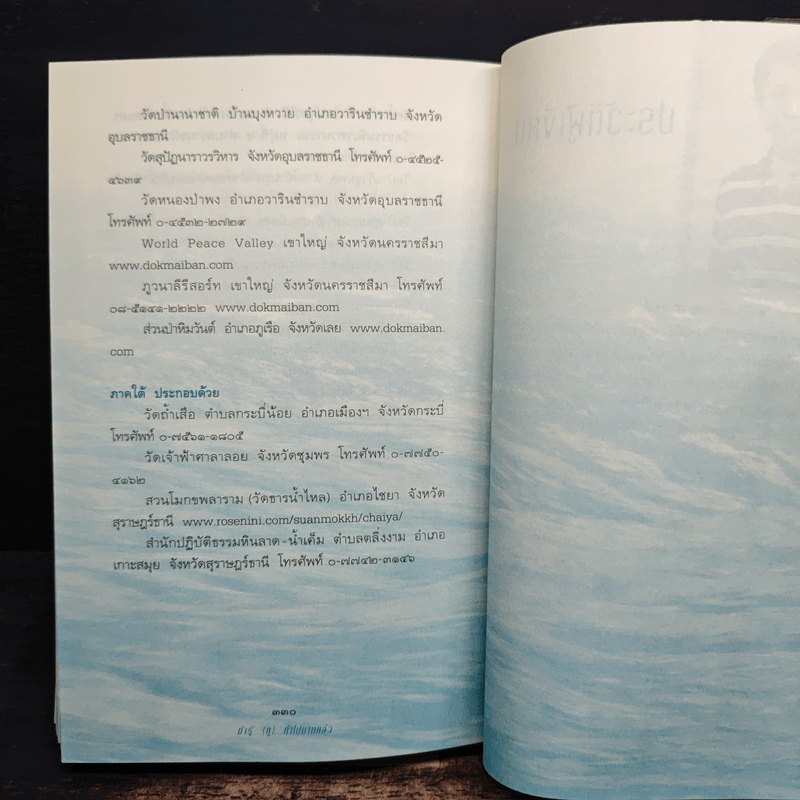 วัดป่านานาชาติ บ้านบุงหวาย อำเภอวารินชำราบ จังหวัด
อุบลราชธานี
วัดสุปัฏนาราวรวิหาร จังหวัดอุบลราชธานี โทรศัพท์ ๐-๔๕๒๕-
๔๖๓๙
วัดหนองป่าพง อำเภอวารินชำราบ จังหวัดอุบลราชธานี
โทรศัพท์ ๐-๔๕๓๒-๒๗๒๙
World Peace Valley เขาใหญ่ จังหวัดนครราชสีมา
www.dokmaiban.com
ภูวนาลีรีสอร์ท เขาใหญ่ จังหวัดนครราชสีมา โทรศัพท์
๐๘-๕๑๔๑-๒๒๒๒ www.dokmaiban.com
ส่วนป่าหิมวันต์ อำเภอภูเรือ จังหวัดเลย www.dokmaiban.
com
ภาคใต้ ประกอบด้วย
วัดถ้ำเสือ ตำบลกระบี่น้อย อำเภอเมืองฯ จังหวัดกระบี่
โทรศัพท์ ๐-๗๕๖๑-๑๘๐๕
วัดเจ้าฟ้าศาลาลอย จังหวัดชุมพร โทรศัพท์ ๐-๗๗๕๐-
๔๑๖๒
สวนโมกขพลาราม (วัดธารน้ำไหล) อำเภอไชยา จังหวัด
สุราษฎร์ธานี www.rosenini.com/suanmokkh/chaiya/
สำนักปฏิบัติธรรมหินลาด-น้ำเค็ม ตำบลตลิ่งงาม อำเภอ
เกาะสมุย จังหวัดสุราษฎร์ธานี โทรศัพท์ ๐-๗๗๔๒-๓๑๔๖
๓๓๐
ทำไปนานแล้ว
ประวัติผู้เขียน